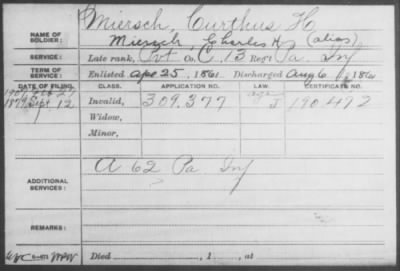 NAME OF SOLDIER: Miersch, Curthus H.
Miersch, Charles H. (alias)
SERVICE: Late rank, Pvt Co. C, 13 Reg't Pa. Inf
TERM OF SERVICE: Enlisted Apr 25, 1861 Discharged Aug 6, 1861
DATE OF FILING. CLASS. APPLICATION NO. LAW. CERTIFICATE NO.
1879 Sept. 12 Invalid, 309.377 J 190.472
Widow,
Minor,
ADDITIONAL SERVICES: A 62 Pa Inf
REMARKS:
Died , 1 , at